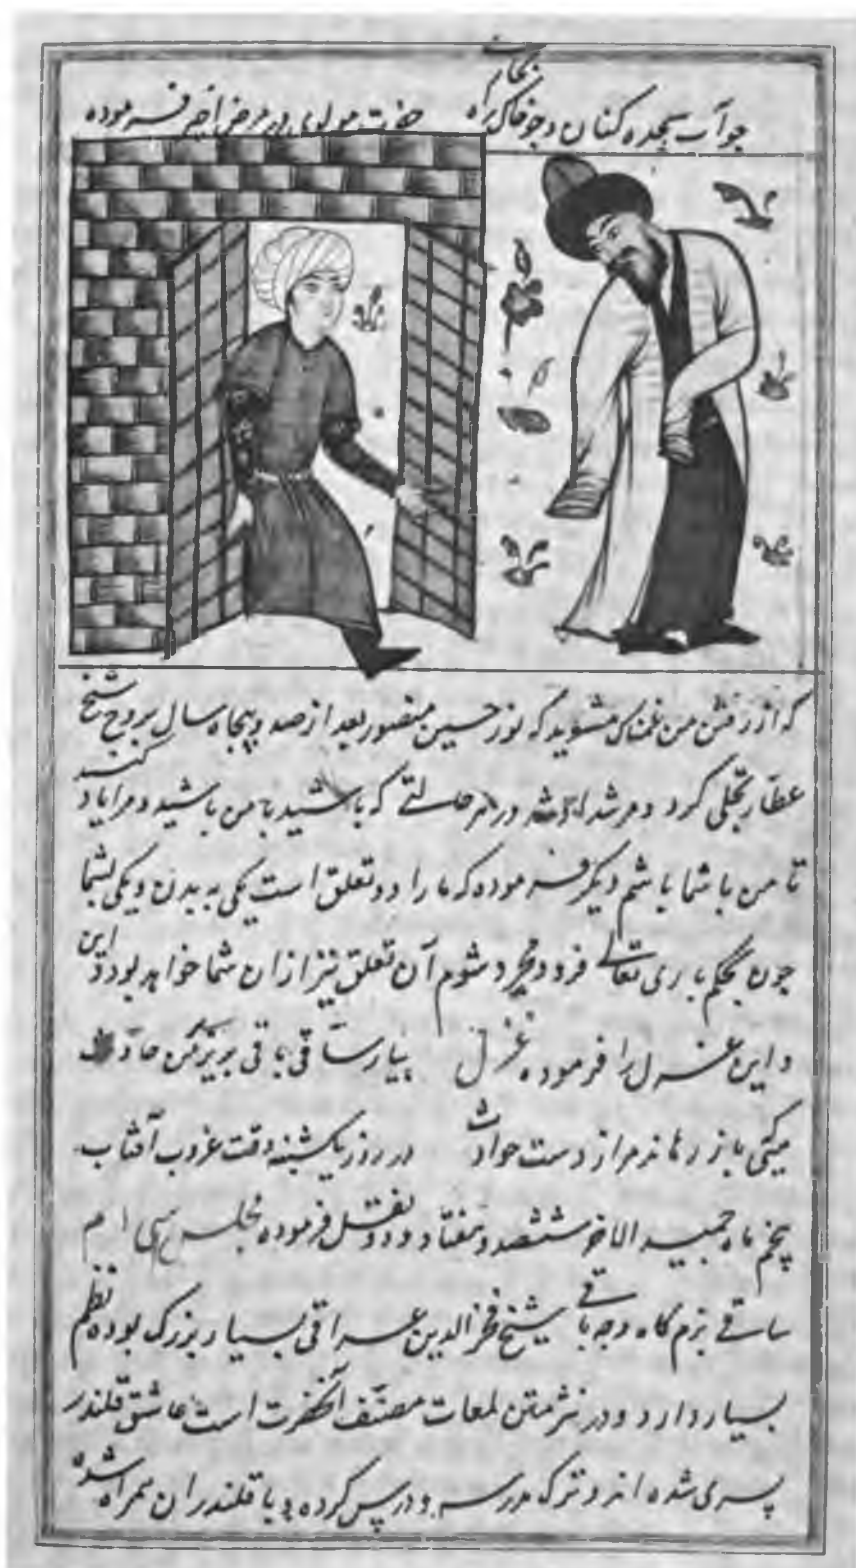 چو آب سجده کنان و چو خاک راه نگار حضرت مولوی در مرض اخیر فرموده
که از رفتن من غمناک مشوید که نور حسین منصور بعد از صد و پنجاه سال بروح شیخ
عطار تجلی کرد و مرشد او شد در هر حالتی که باشید با من باشید و مرا یاد کنید
تا من با شما باشم دیگر فرموده که ما را دو تعلق است یکی به بدن و یکی بشما
چون بحکم باری تعالی فرد و مجرد شوم آن تعلق نیز از ان شما خواهد بود این
و این غزل را فرموده غزل بیار ساقی باقی بریز
میکنی باز رهاندم از دست حوادث در روز یکشنبه وقت غروب آفتاب
پنجم ماه جمید الاخر ششصد و هفتاد و دو نقل فرموده مجلس سی ام
ساقی بزم گاه وجه باقی شیخ فخر الدین عراقی بسیار بزرک بوده نظم
بسیار دارد و در نثر متن لمعات مصنف آنحضرت است عاشق قلندر
پسری شده اند و ترک مدرسه و درس کرده و با قلندران همراه شده